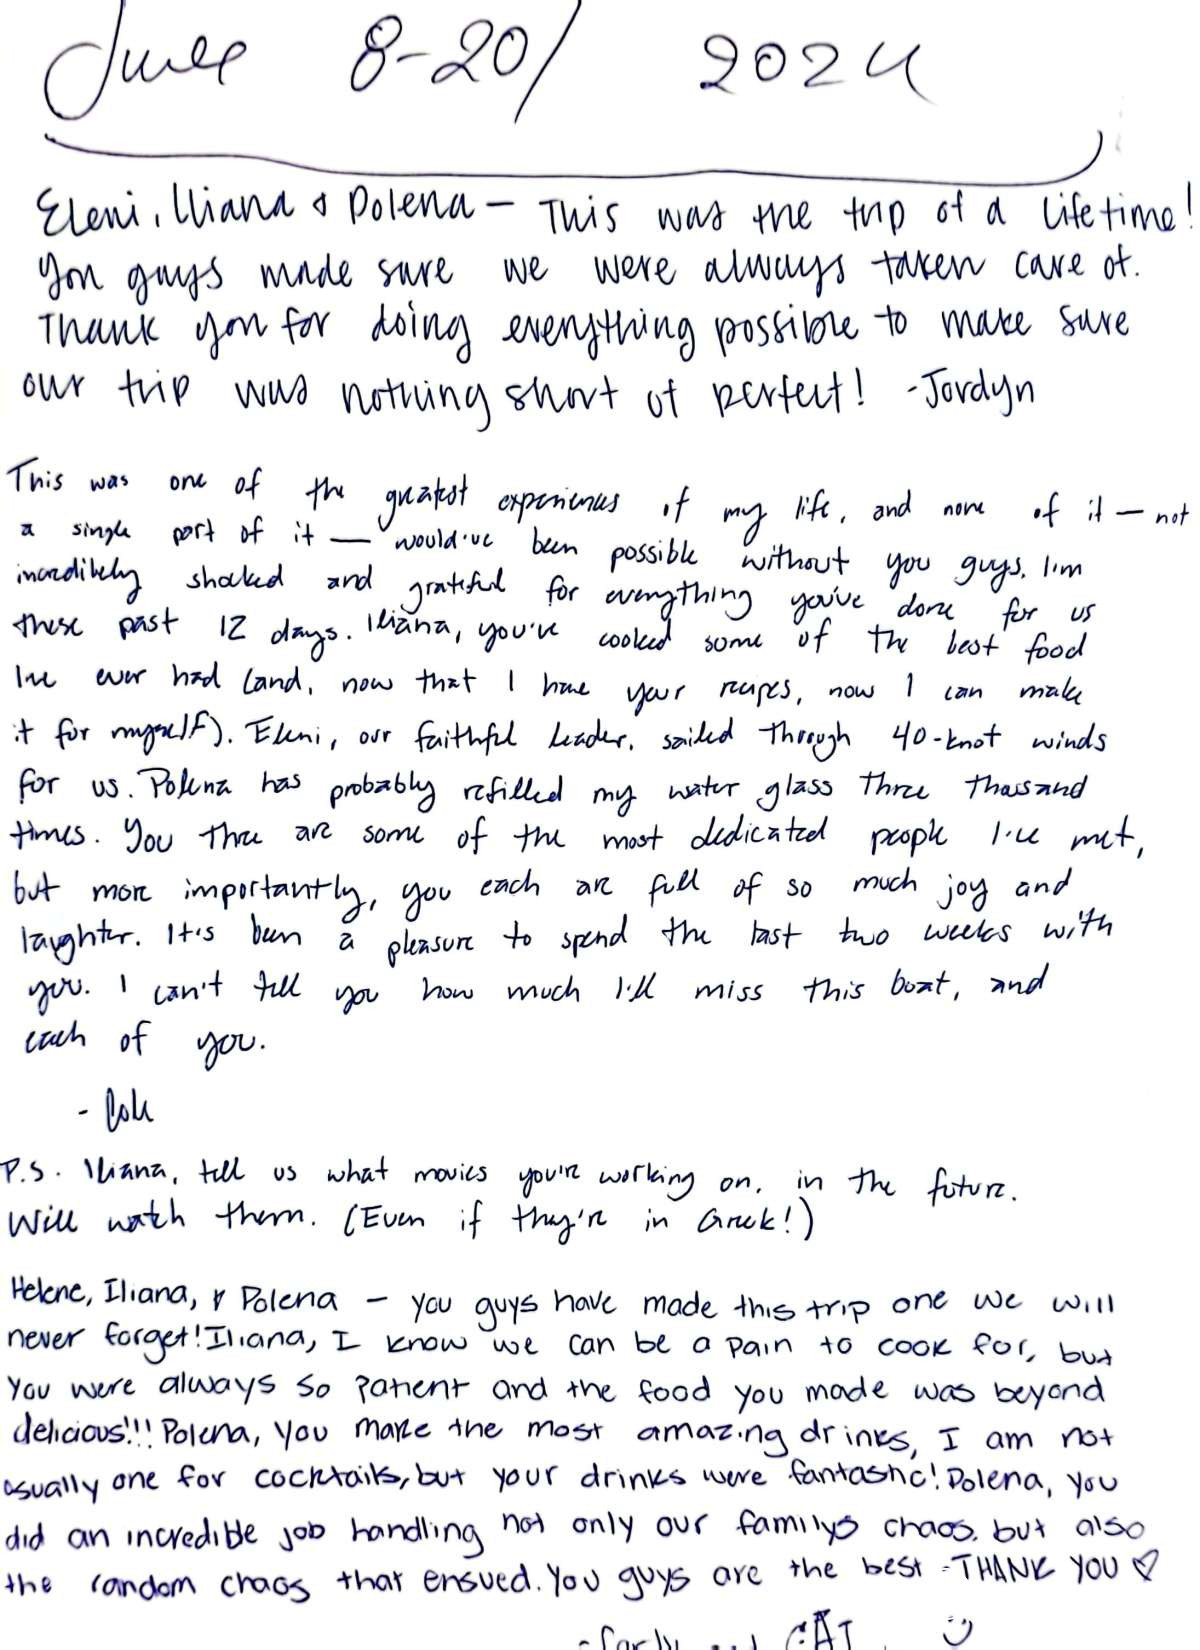 June 8-20/ 2024
Eleni, Iliana & Polena — This was the trip of a lifetime!
You guys made sure we were always taken care of.
Thank you for doing everything possible to make sure
our trip was nothing short of perfect! -Jordyn
This was one of the greatest experiences of my life, and none of it — not
a single part of it — would've been possible without you guys. I'm
incredibely shocked and grateful for everything you've done for us
these past 12 days. Iliana, you've cooked some of the best food
I've ever had (and, now that I have your recipes, now I can make
it for myself). Eleni, our faithful leader, sailed through 40-knot winds
for us. Polena has probably refilled my water glass three thousand
times. You three are some of the most dedicated people I've met,
but more importantly, you each are full of so much joy and
laughter. It's been a pleasure to spend the last two weeks with
you. I can't tell you how much I'll miss this boat, and
each of you.
- Cole
P.S. Iliana, tell us what movies you're working on, in the future.
Will watch them. (Even if they're in Greek!)
Helene, Iliana, & Polena — you guys have made this trip one we will
never forget! Iliana, I know we can be a pain to cook for, but
you were always so patient and the food you made was beyond
delicious!!! Polena, you make the most amazing drinks, I am not
usually one for cocktails, but your drinks were fantastic! Polena, you
did an incredible job handling not only our familys chaos, but also
the random chaos that ensued. You guys are the best - THANK YOU ♡
CAT